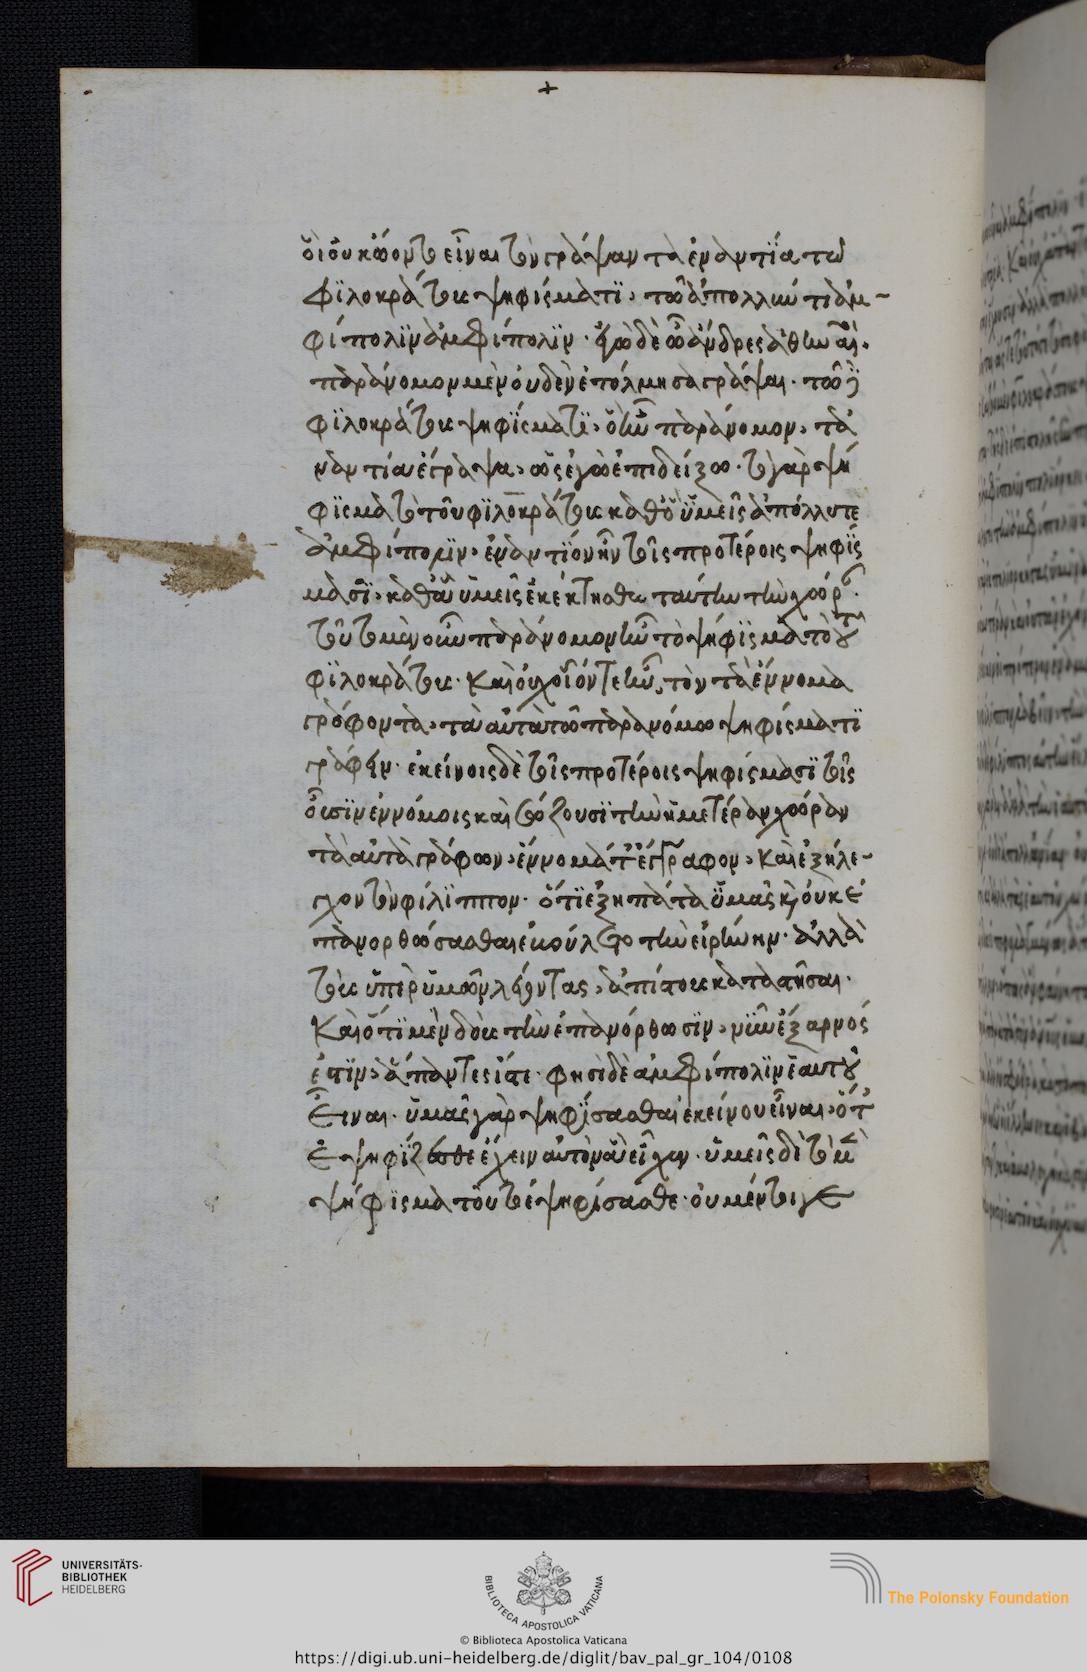 +
ὅι οὐκ ἐῶν τὸ εἶναι τὸν γράψαντα ἐναντία τῶ
φιλοκράτους ψηφίσματι, τῶ ἀπολλύντι ἀμ-
φίπολιν ἀμφίπολιν. ἐγὼ δὲ ὦ ἄνδρες ἀθηναῖοι
παράνομον μὲν οὐδὲν ἐτόλμησα γράψαι. τῶ δὲ
φιλοκράτους ψηφίσματι, ὃ ἦν παράνομον, τἀ
ναντία ἔγραψα, ὡς ἐγὼ ἐπιδείξω. τὸ γὰρ ψή
φισμα τὸ τοῦ φιλοκράτους καθ' ὃ ὑμεῖς ἀπόλλυτε
ἀμφίπολιν, ἐναντίον ἦν τοῖς προτέροις ψηφίς
μασι, καθ' ἃ ὑμεῖς ἐκέκτησθε ταύτην τὴν χώραν.
τοῦτο μὲν οὖν παράνομον ἦν τὸ ψήφισμα τὸ τοῦ
φιλοκράτους. καὶ οὐχ οἷόν τε ἦν, τὸν τὰ ἔννομα
γράφοντα, ταὐτὰ τῶ παρανόμω ψηφίσματι
γράφειν. ἐκείνοις δὲ τοῖς προτέροις ψηφίσμασι τοῖς
οὖσιν ἐννόμοις καὶ σώζουσι τὴν ἡμετέραν χώραν
τὰ αὐτὰ γράφων, ἔννομά τ' ἔγραφον, καὶ ἐξήλε-
γχον τὸν φίλιππον. ὅτι ἐξηπάτα ὑμᾶς καὶ οὐκ ἐ
πανορθώσασθαι ἐβούλετο τὴν εἰρήνην. ἀλλὰ
τοὺς ὑπὲρ ὑμῶν λέγοντας, ἀπίστους καταστῆσαι.
καὶ ὅτι μὲν δοὺς τὴν ἐπανόρθωσιν, νῦν ἔξαρνός
ἐστιν, ἅπαντες ἴστε. φησὶ δὲ ἀμφίπολιν ἑαυτοῦ
εἶναι. ὑμᾶς γὰρ ψηφίσασθαι ἐκείνου εἶναι, ὅτ'
ἐψηφίζασθε ἔχειν αὐτὸν ἃ εἶχεν. ὑμεῖς δὲ τὸ μὲν
ψήφισμα τοῦτο ἐψηφίσασθε. οὐ μέντοι γε
UNIVERSITÄTS-
BIBLIOTHEK
HEIDELBERG
BIBLIOTECA APOSTOLICA VATICANA
© Biblioteca Apostolica Vaticana
The Polonsky Foundation
https://digi.ub.uni-heidelberg.de/diglit/bav_pal_gr_104/0108